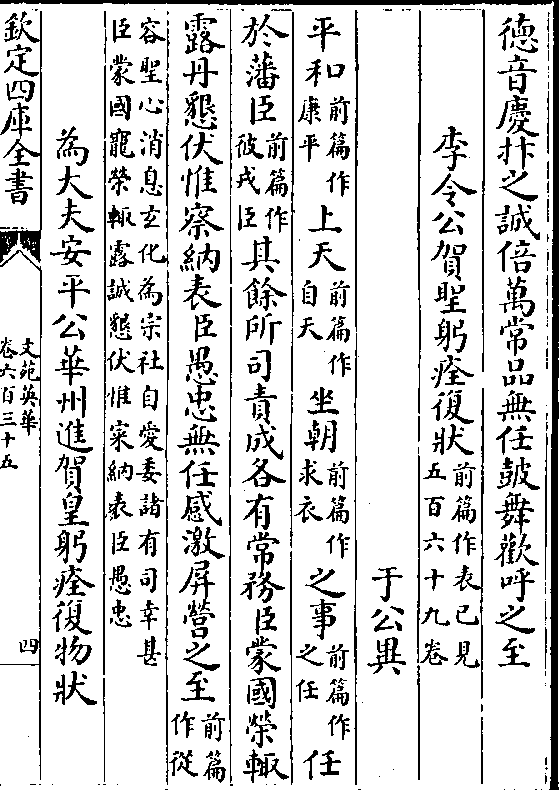 德音慶抃之誠倍萬常品無任鼓舞歡呼之至
李令公賀聖躬痊復狀前篇作表已見五百六十九卷
于公異
平和前篇作康平上天前篇作自天坐朝前篇作求衣之事前篇作之任任
於藩臣前篇作彼戎臣其餘所司責成各有常務臣蒙國榮輙
露丹懇伏惟察納表臣愚忠無任感激屏營之至前篇作從
容聖心消息玄化為宗社自愛委諸有司幸甚
臣蒙國寵榮輙露誠懇伏惟寀納表臣愚忠
為大夫安平公華州進賀皇躬痊復物狀
欽定四庫全書
文苑英華
卷六百三十五
四